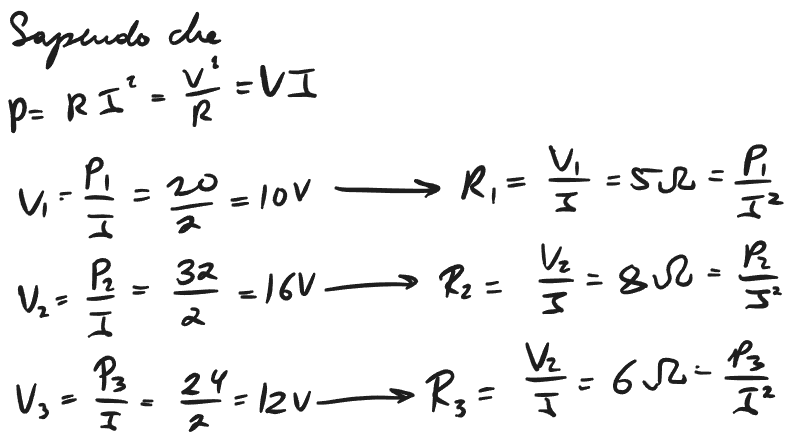 Sapendo che
P= RI² = V²/R = VI
V₁ = P₁/I = 20/2 = 10V → R₁ = V₁/I = 5Ω = P₁/I²
V₂ = P₂/I = 32/2 = 16V → R₂ = V₂/I = 8Ω = P₂/I²
V₃ = P₃/I = 24/2 = 12V → R₃ = V₂/I = 6Ω = P₃/I²